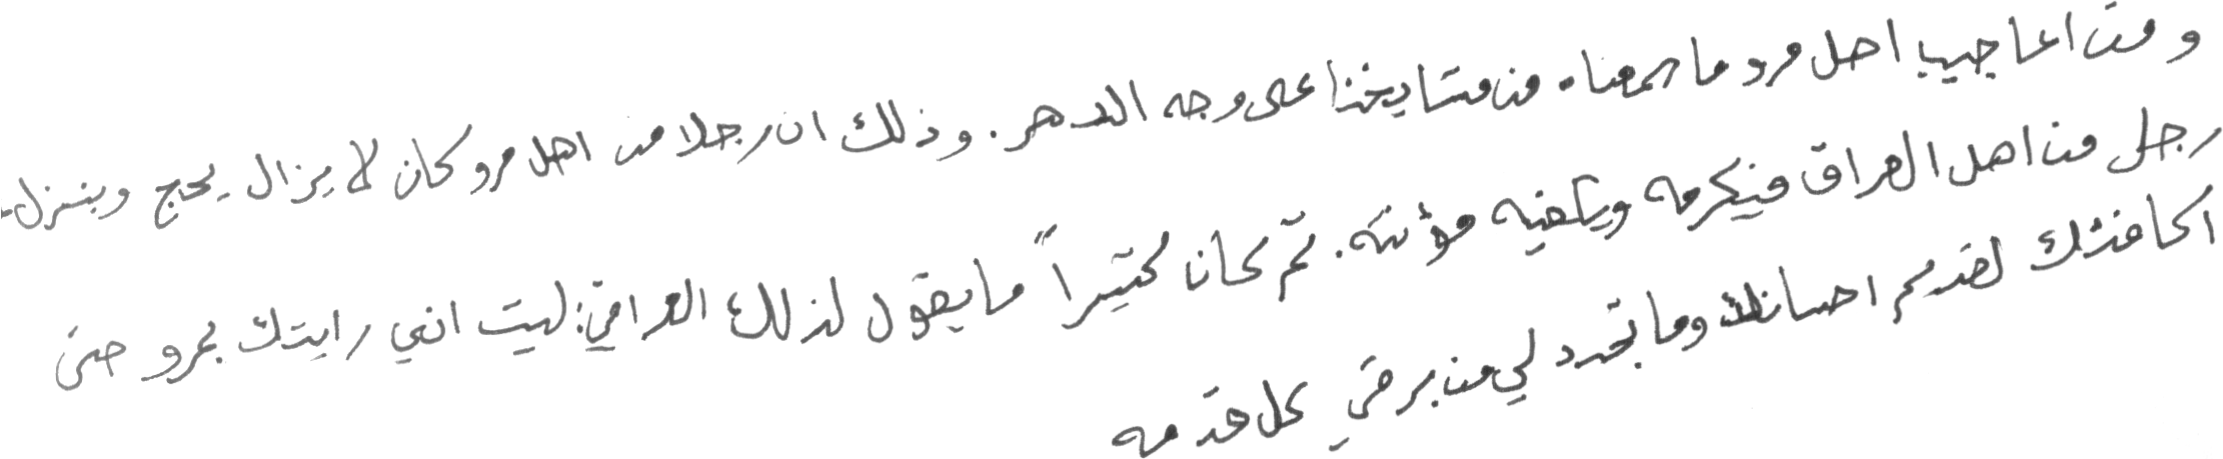 ومن اعاجيب اهل مرو ما سمعناه من مشايخنا على وجه الدهر. وذلك ان رجلا من اهل مرو كان لا يزال يحج وينزل
رجل من اهل العراق فيكرمه ويكفيه مؤنته. ثم كان كثيراً ما يقول لذلك العراقي: ليت اني رايتك بمرو حتى
اكافئك لقديم احسانك وما تجدد لي من بر في كل قدمه